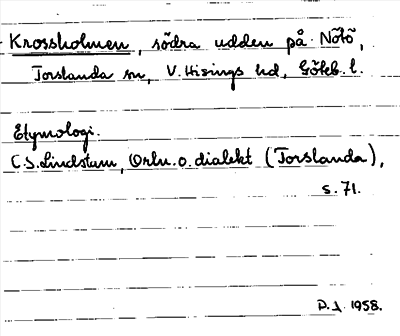 Krossholmen, södra udden på Nötö,
Torslanda sn, V. Hisings hd, Göteb. l.
Etymologi.
C.S. Lindstam, Ortn. o. dialekt (Torslanda),
s. 71.
P.J. 1958.